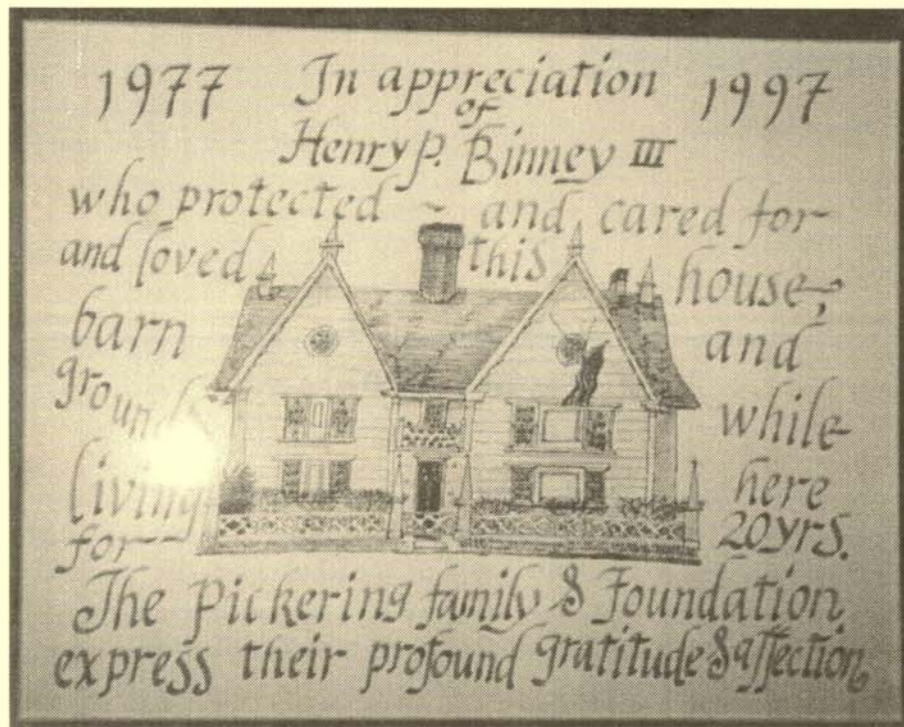 1977 In appreciation 1997
of
Henry P. Binney III
who protected ~ and cared for
and loved this house,
barn and
grounds while
living here
for 20yrs.
The Pickering family & Foundation
express their profound gratitude & affection.